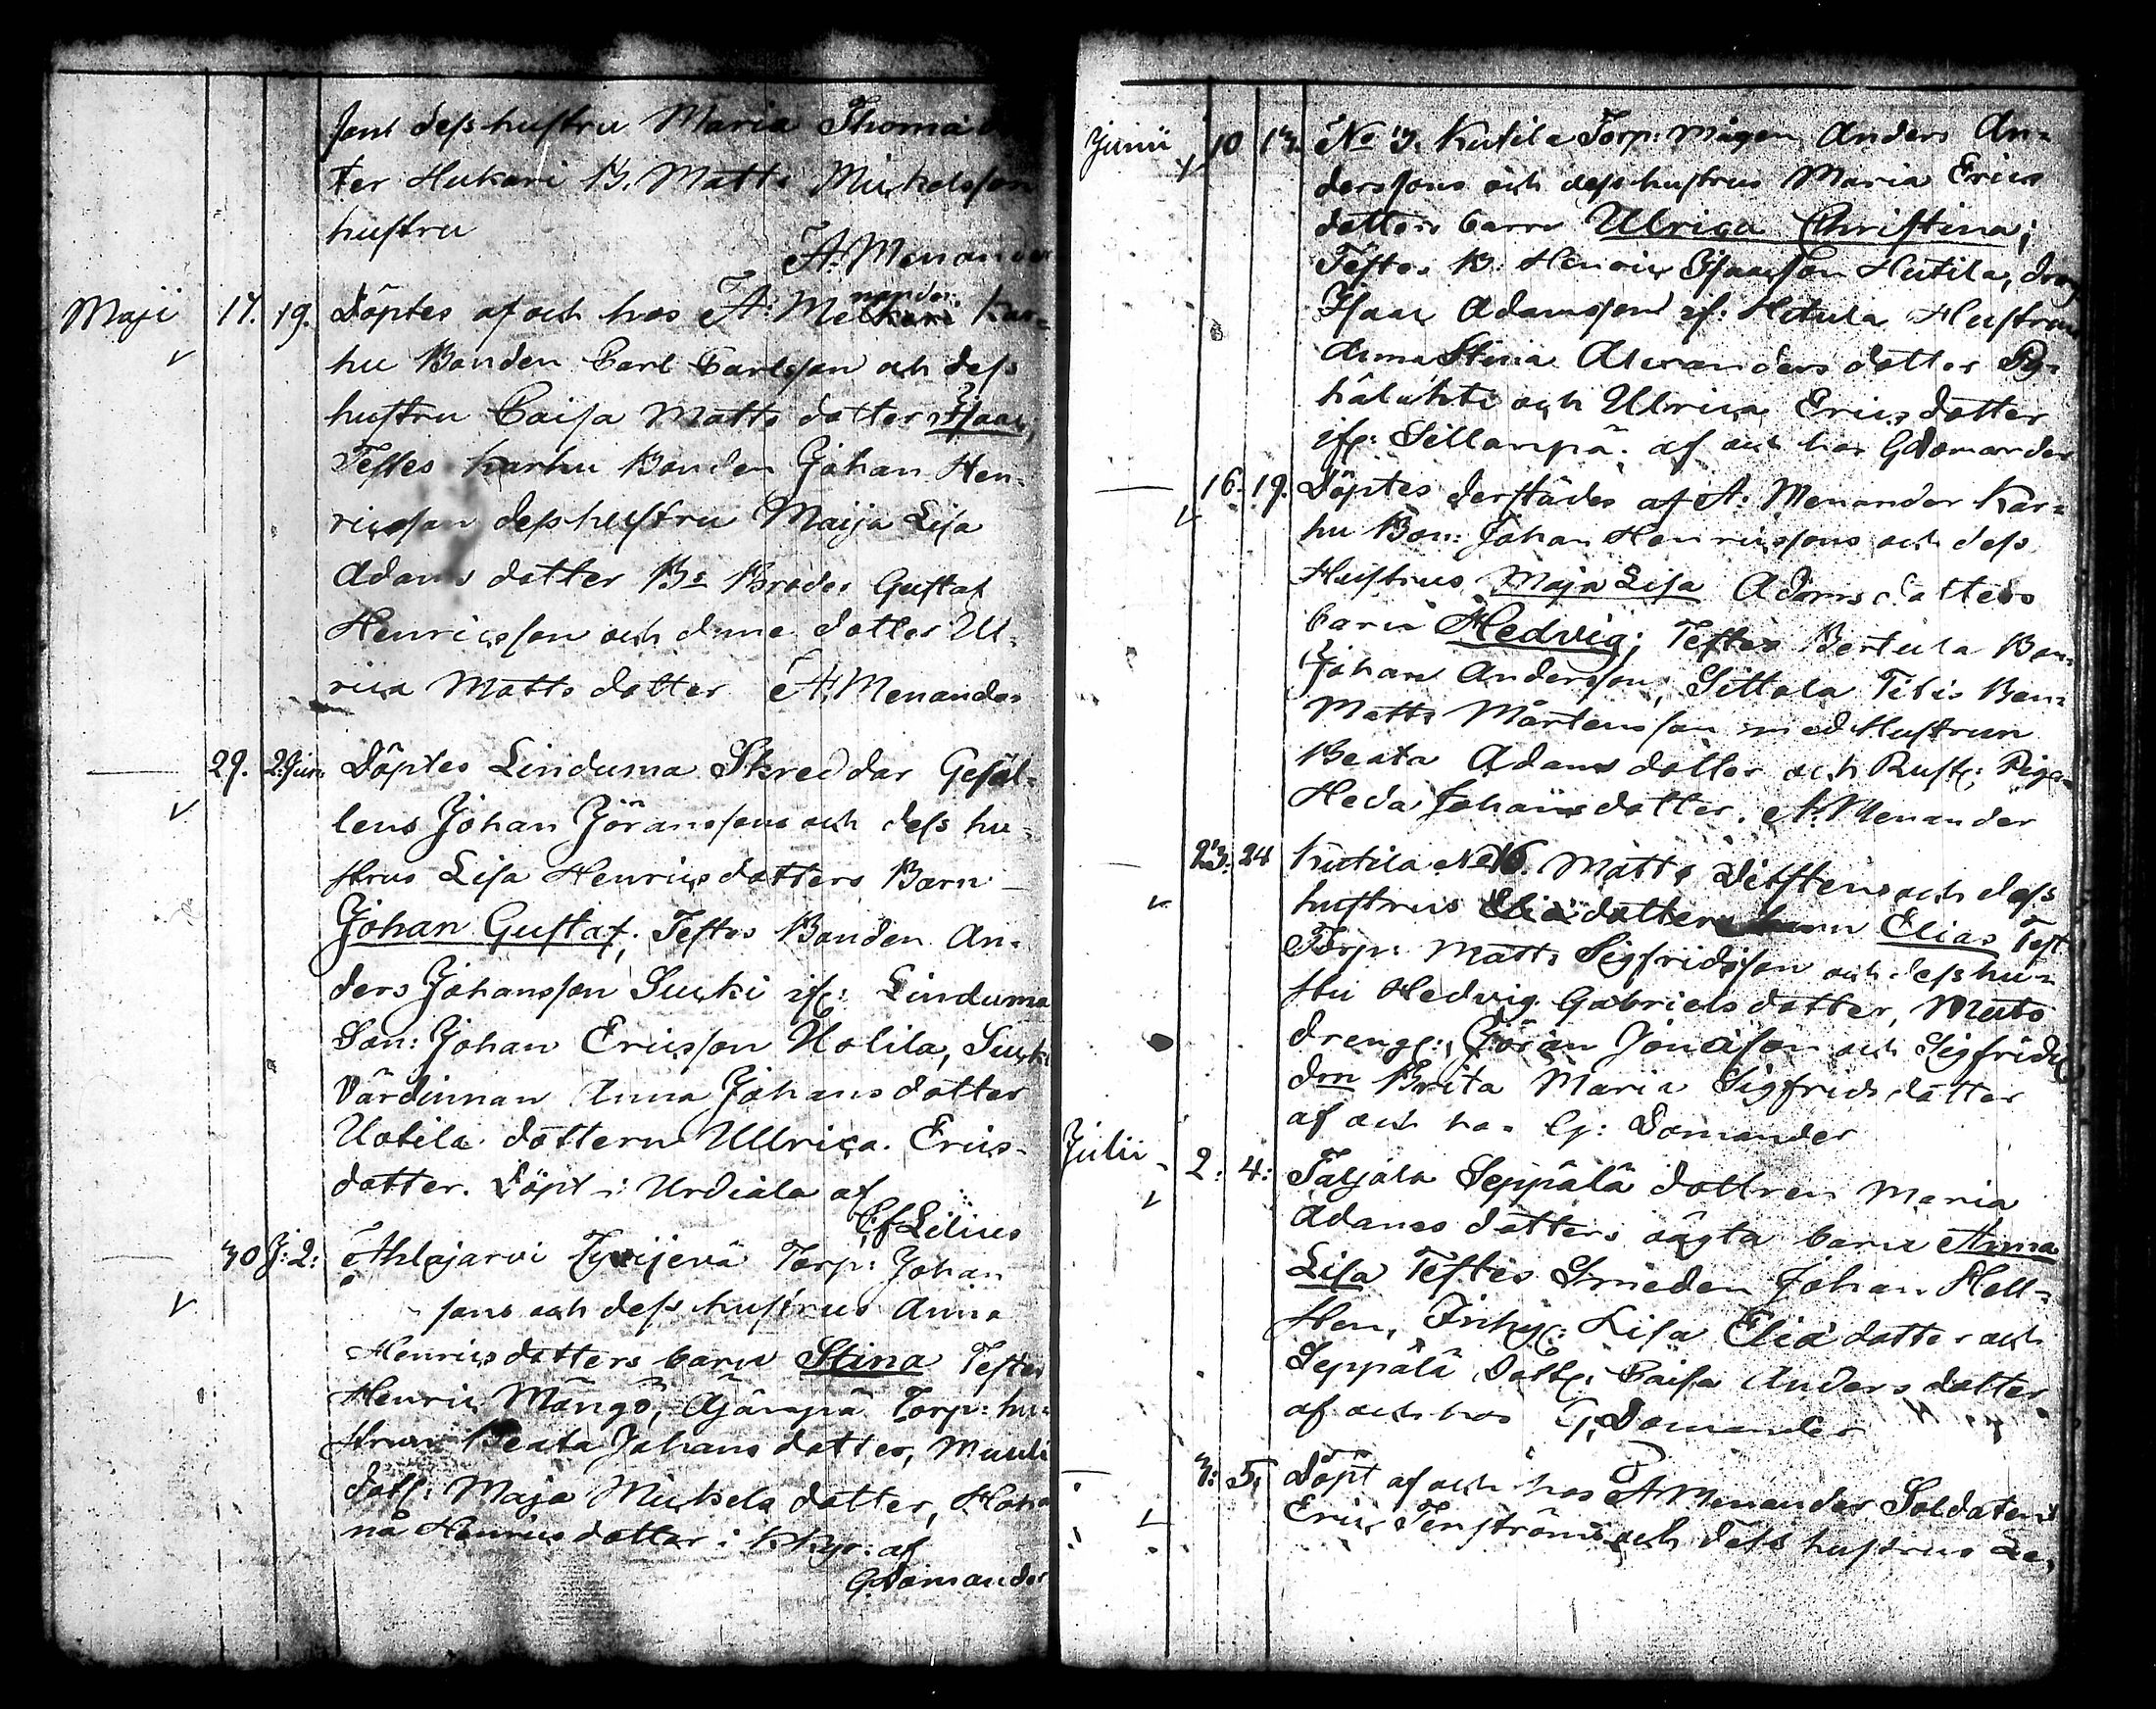 samt dess hustru Maria Thomædot
ter Hukari B. Matts Mickelsson
hustru
A: Menander
Maji 17. 19. Döptes af och hos A: Menander Kar=
hu Bonden Carl Carlsson och dess
hustru Caisa Matts dotter Isaac,
Testes Karhu Bonden Johan Hen=
ricsson dess hustru Maija Lisa
Adams dotter Bs Broder Gustaf
Henricsson och dme dotter Ul=
rica Matts dotter A: Menander
29. 2: Jun: Döptes Linduma Skreddar Gesäl=
lens Johan Jöranssons och dess hu=
strus Lisa Henricsdotters Barn
Johan Gustaf; Testes Bonden An=
ders Johansson Sucki if: Linduma
Son: Johan Ericsson Uotila, Sucki
Värdinnan Anna Johans dotter
Uotila dottern Ullrica Erics=
dotter. Döpt i Urdiala af
C: f Lilius
30 J: 2: Athlajarvi Torp: Johan
sons och dess hustrus Anna
Henricsdotters barn Stina Testes
Henric Mångo, Äjänpä Torp: hu=
strun Beata Johans dotter, Mauli
dott: Maja Mickels dotter, Hon
nå Henricsdotter i Kkyr: af
G: Domander
Junii 10 13. No 3. Kutila Torp: Mågen Anders An=
derssons och dess hustrus Maria Erics
dotters barn Ulrica Christina;
Testes B: Henric Isaacsson Hutila, dreng
Isaac Adamsson if: Hutula Hustrun
Anna Stina Alexanders dotter Py=
hälahti och Ulrica Ericsdotter
if: Sillanpä. af och hos G Domander
16. 19. Döptes derstädes af A: Menander Kar=
hu Bon: Johan Henricssons och dess
Hustrus Maja Lisa Adams dotters
barn Hedvig; Testes Bertula Bon=
Johan Andersson, Sittola Bon=
Matts Mårtensson med Hustrun
Beata Adams dotter och Rust: Piga=
Heda Johans dotter. A: Menander
23. 24 Kutila No 16. Matts och dess
hustrus Eliædotters barn Elias Test
Torp: Matts Sigfridsson och dess hu=
stru Hedvig Gabriels dotter,
dreng: Jöran Jonæson och
don Brita Maria Sigfrids dotter
af och hos G: Domander
Julii 2: 4: Taljala Seppälä dottren Maria
Adams dotters oägta barn Anna
Lisa Testes Smeden Johan Hell=
sten, Inhys: Lisa Eliædotter och
Seppälä Dott: Caisa Anders dotter
af och hos G: Domander
3: 5. Döpt af och hos A Menander Soldatens
Eric Tenströms och dess hustrus Le=